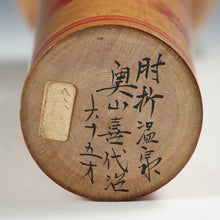 肘折温泉
奥山喜代治
六十五才